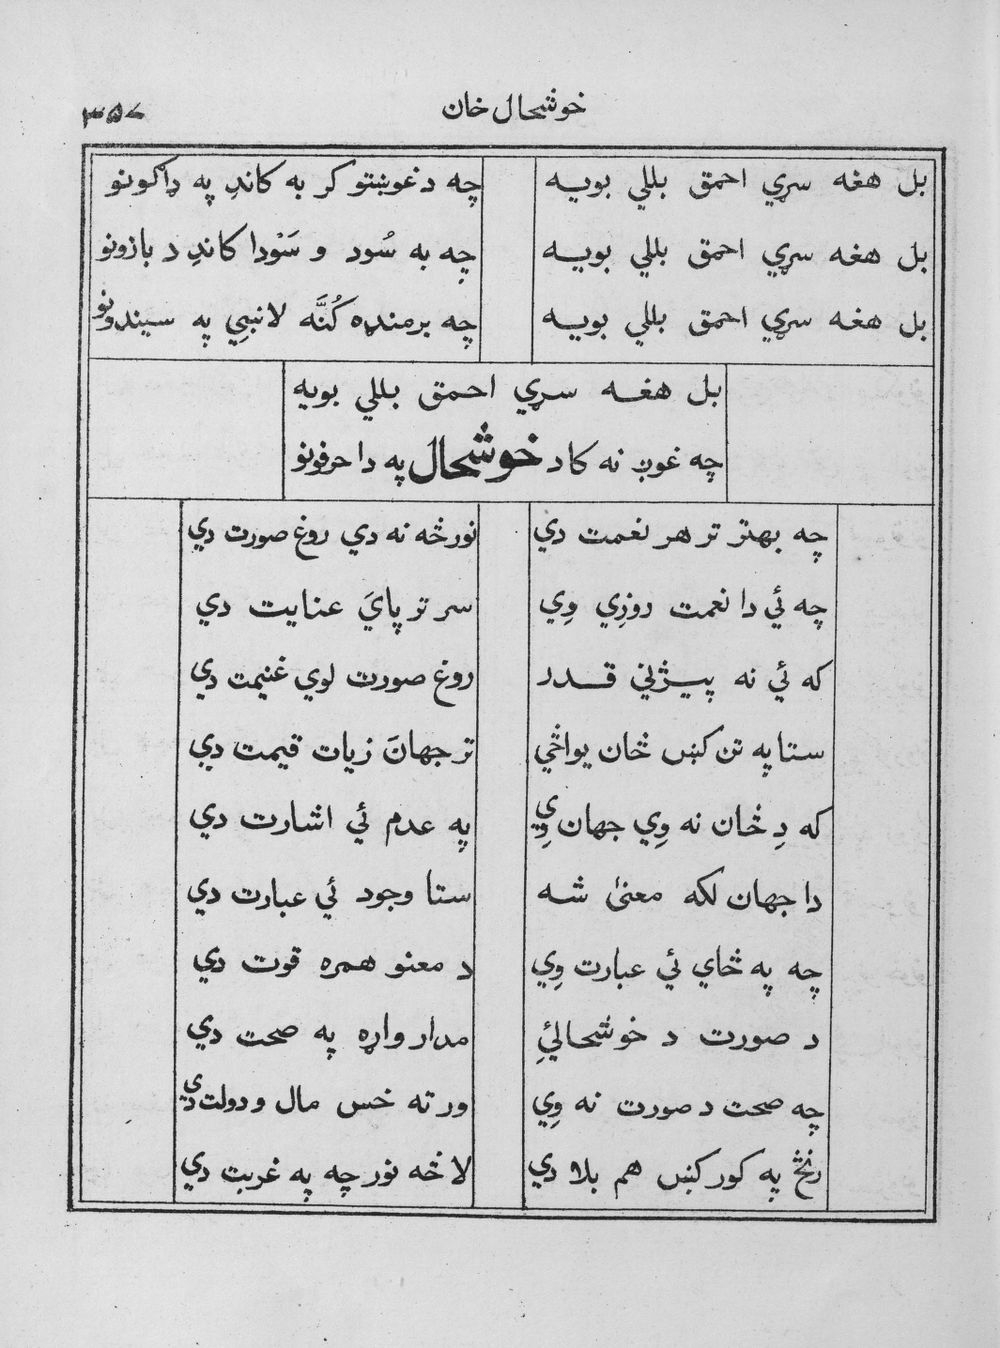 خوشحال خان
۳۵۷
بل هغه سړي احمق بللي بويه
چه د غوښتو کر به کاندِ په ډاګونو
بل هغه سړي احمق بللي بويه
چه به سُود و سَوْدا کاندِ د بازونو
بل هغه سړي احمق بللي بويه
چه برمنډه کُنَّه لانبيِ په سيندونو
بل هغه سړي احمق بللي بويه
چه غوږ نه کا د خوشحال په دا حرفونو
چه بهتر تر هر نعمت دي
نور څه نه دي روغ صورت دي
چه ئي دا نعمت روزِي وِي
سر تر پايَ عنايت دي
که ئي نه پيژني قدر
روغ صورت لوي غنيمت دي
ستا په تن کښ ځان يواځي
تر جهانَ زيات قيمت دي
که دِ ځان نه وِي جهان وِي
په عدم ئي اشارت دي
دا جهان لکه معنیٰ شه
ستا وجود ئي عبارت دي
چه په ځاي ئي عبارت وِي
د معنو همره قوت دي
د صورت د خوشحالئِ
مدار واړه په صحت دي
چه صحت د صورت نه وِي
ورته خس مال و دولت دي
رنځ په کور کښ هم بلا دي
لا څه نور چه په غربت دي